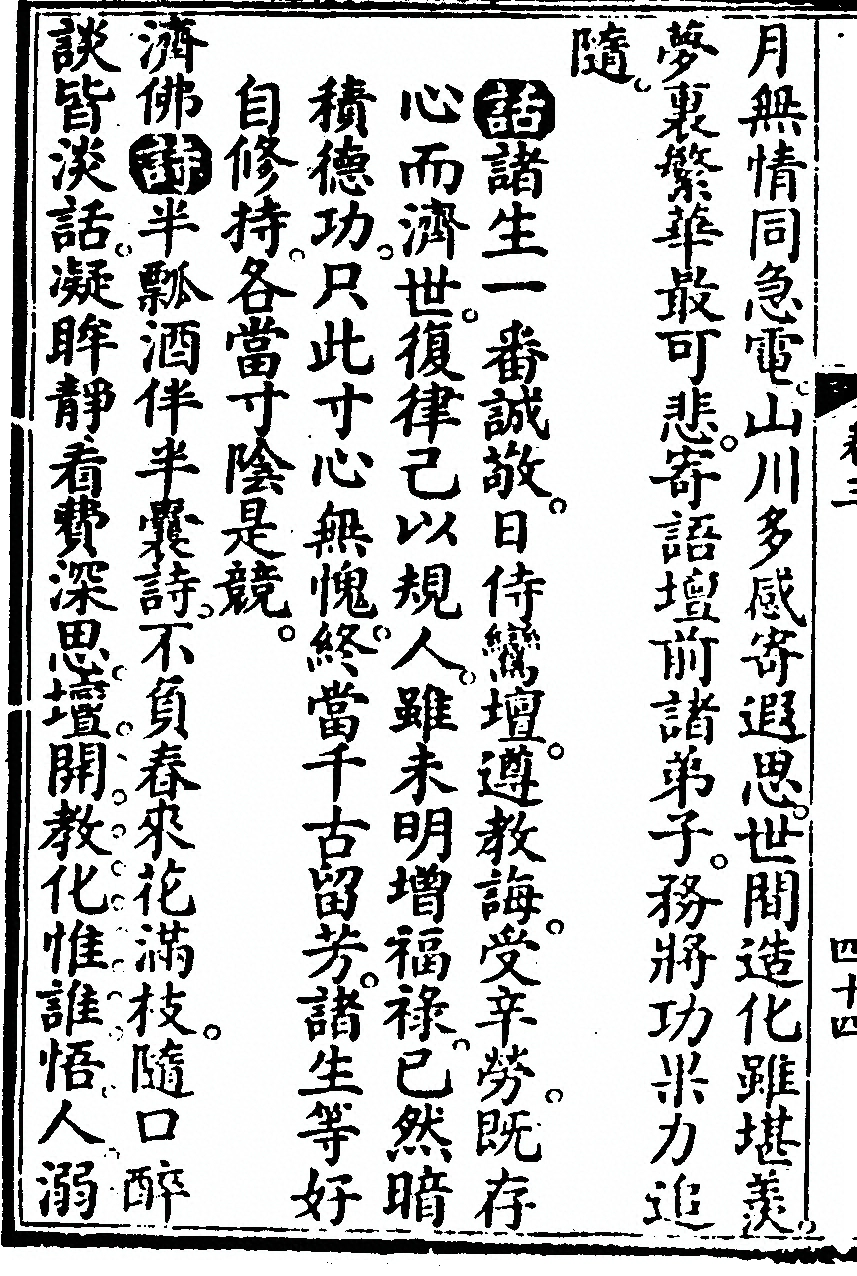 卷三
四十四
月無情同急電。山川多感寄遐思。世間造化雖堪羨。
夢裏繁華最可悲。寄語壇前諸弟子。務將功果力追
隨。
話諸生一番誠敬。日侍鸞壇。遵教誨。受辛勞。既存
心而濟世。復律己以規人。雖未明增福祿。已然暗
積德功。只此寸心無愧。終當千古留芳。諸生等好
自修持。各當寸陰是競。
濟佛詩半瓢酒伴半囊詩。不負春來花滿枝。隨口醉
談皆淡話。凝眸靜看費深思。壇。開。教。化。惟。誰。悟。人。溺